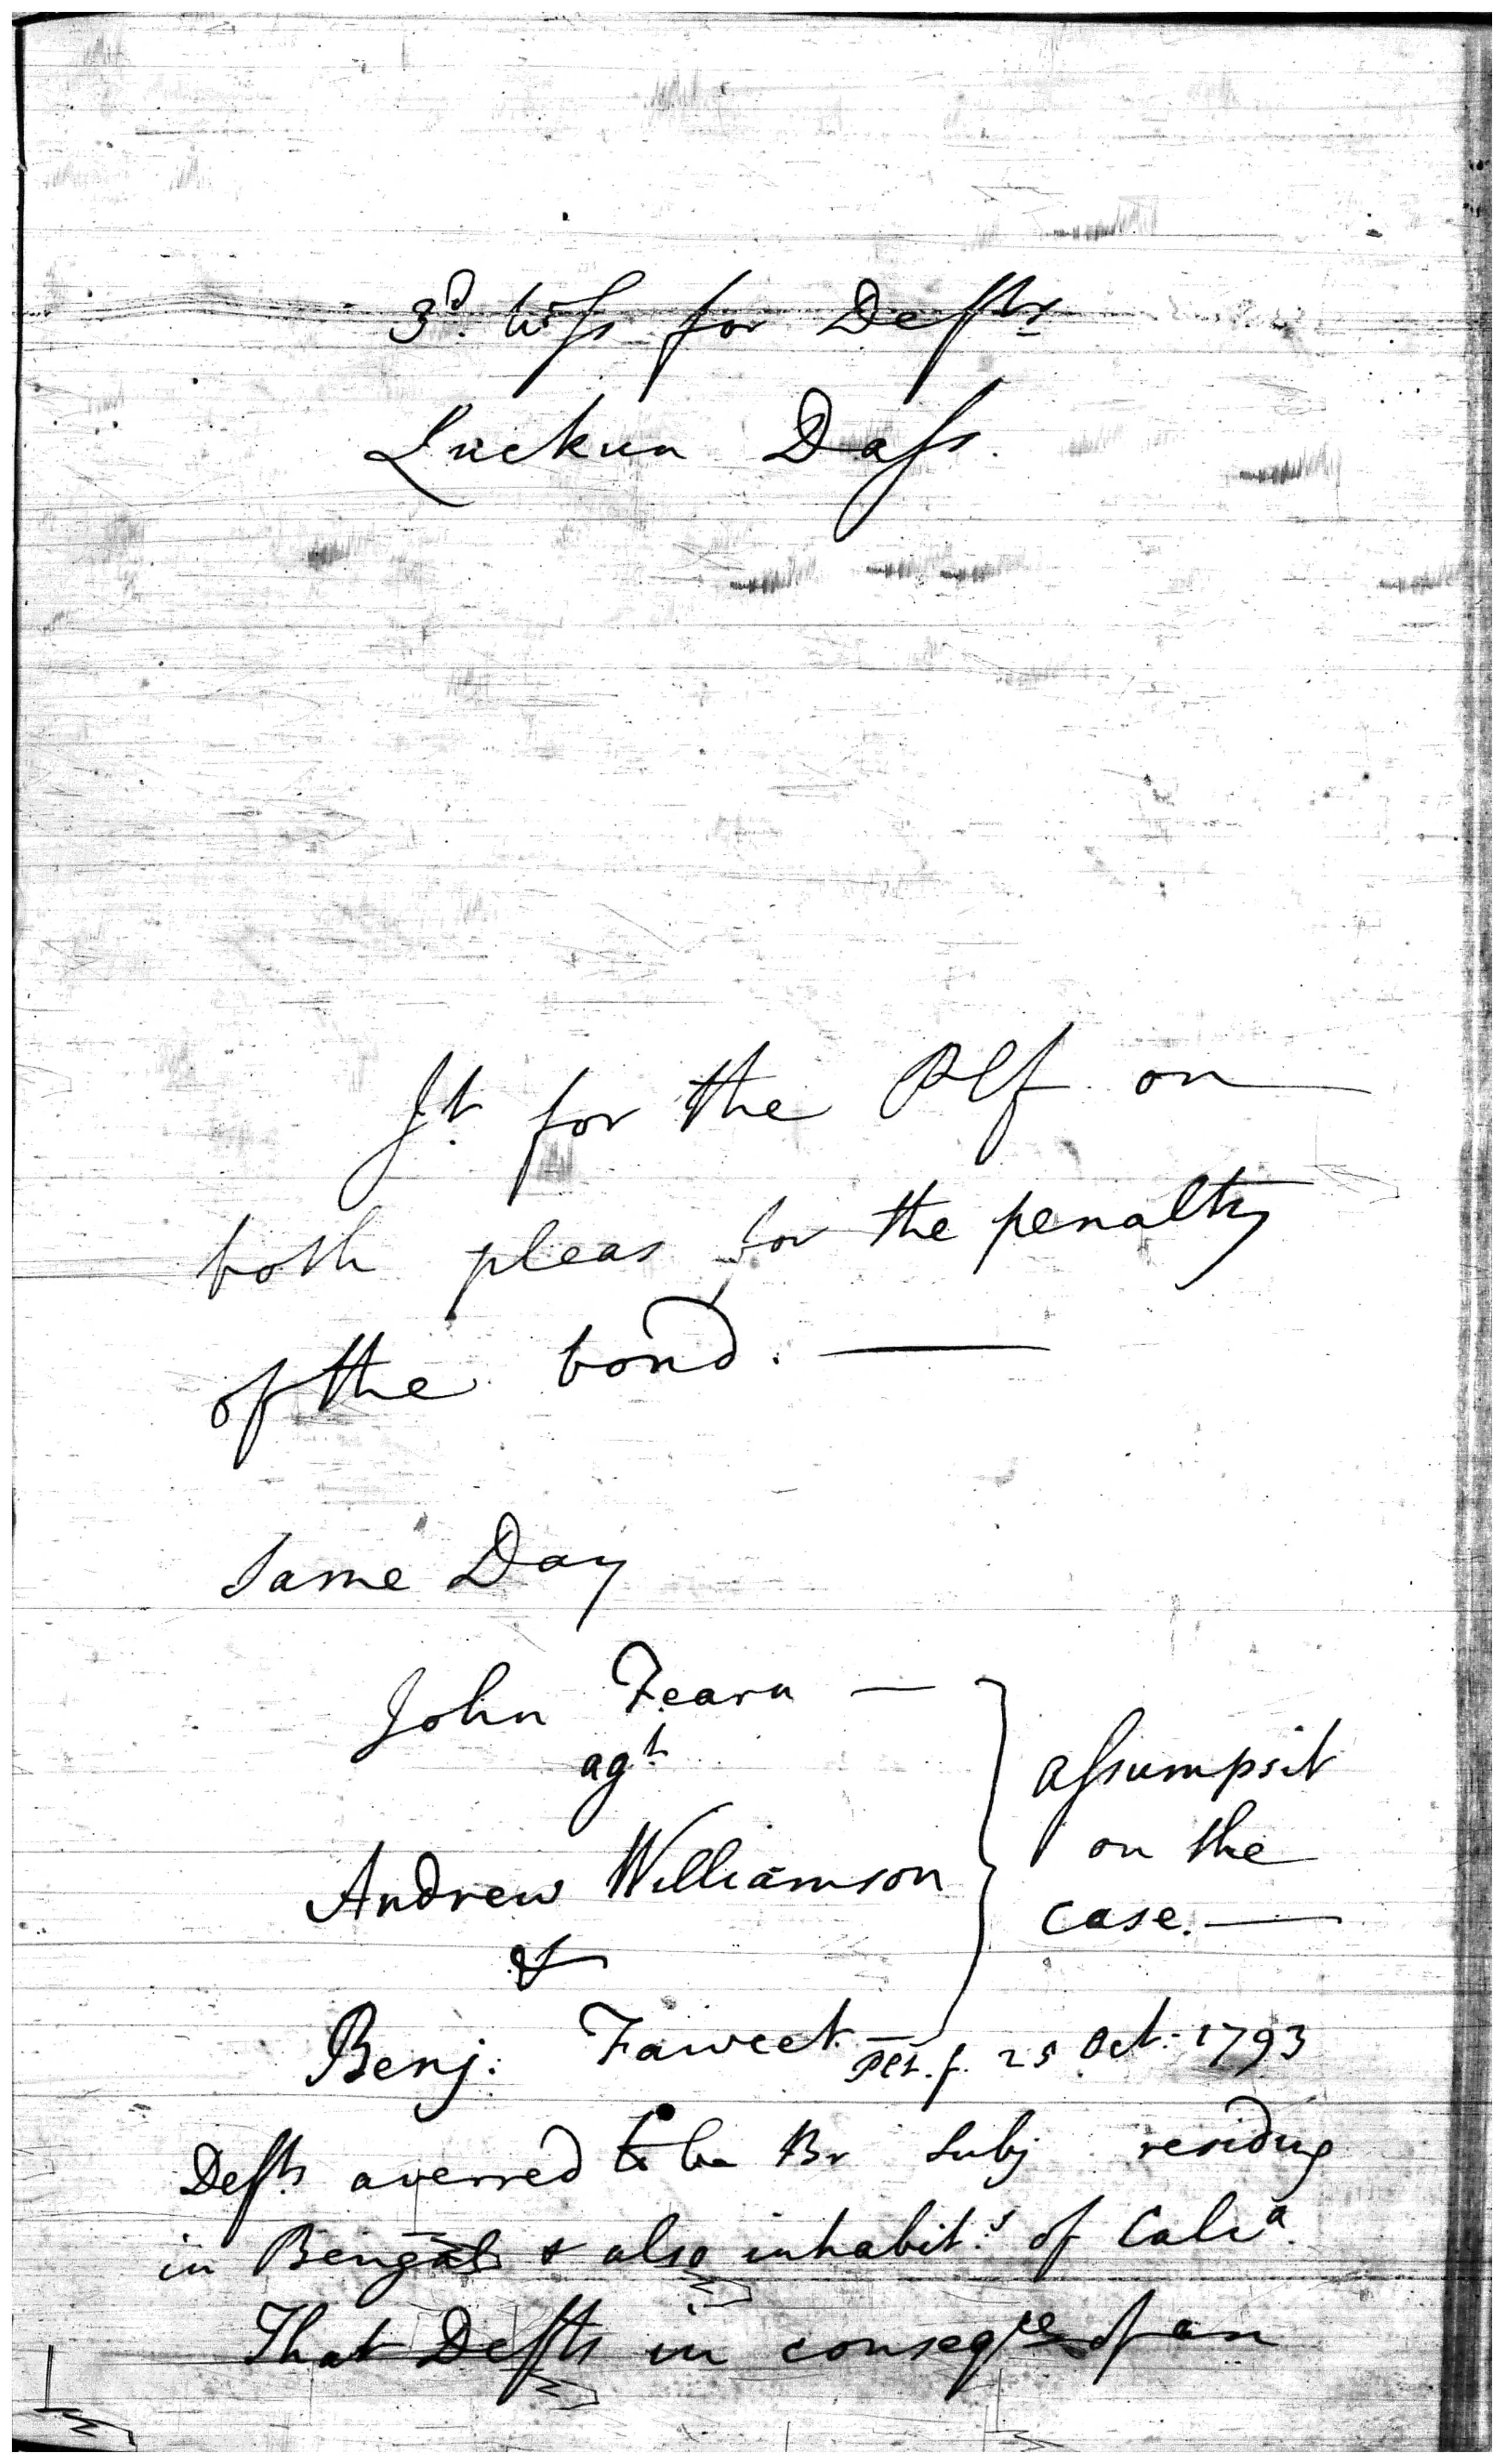 3d. Wiss for Defts
Luckun Dass.
Jt. for the Plf on
both pleas for the penalty
of the bond. —
Same Day
John Fearn —
agt
Andrew Williamson
&
Benj: Fawcet.
assumpsit
on the
case. —
Plt. f. 25 Oct. 1793
Defts averred to be Br Subj residing
in Bengal & also inhabit.s of Cala.
That Defts in conseqce of an